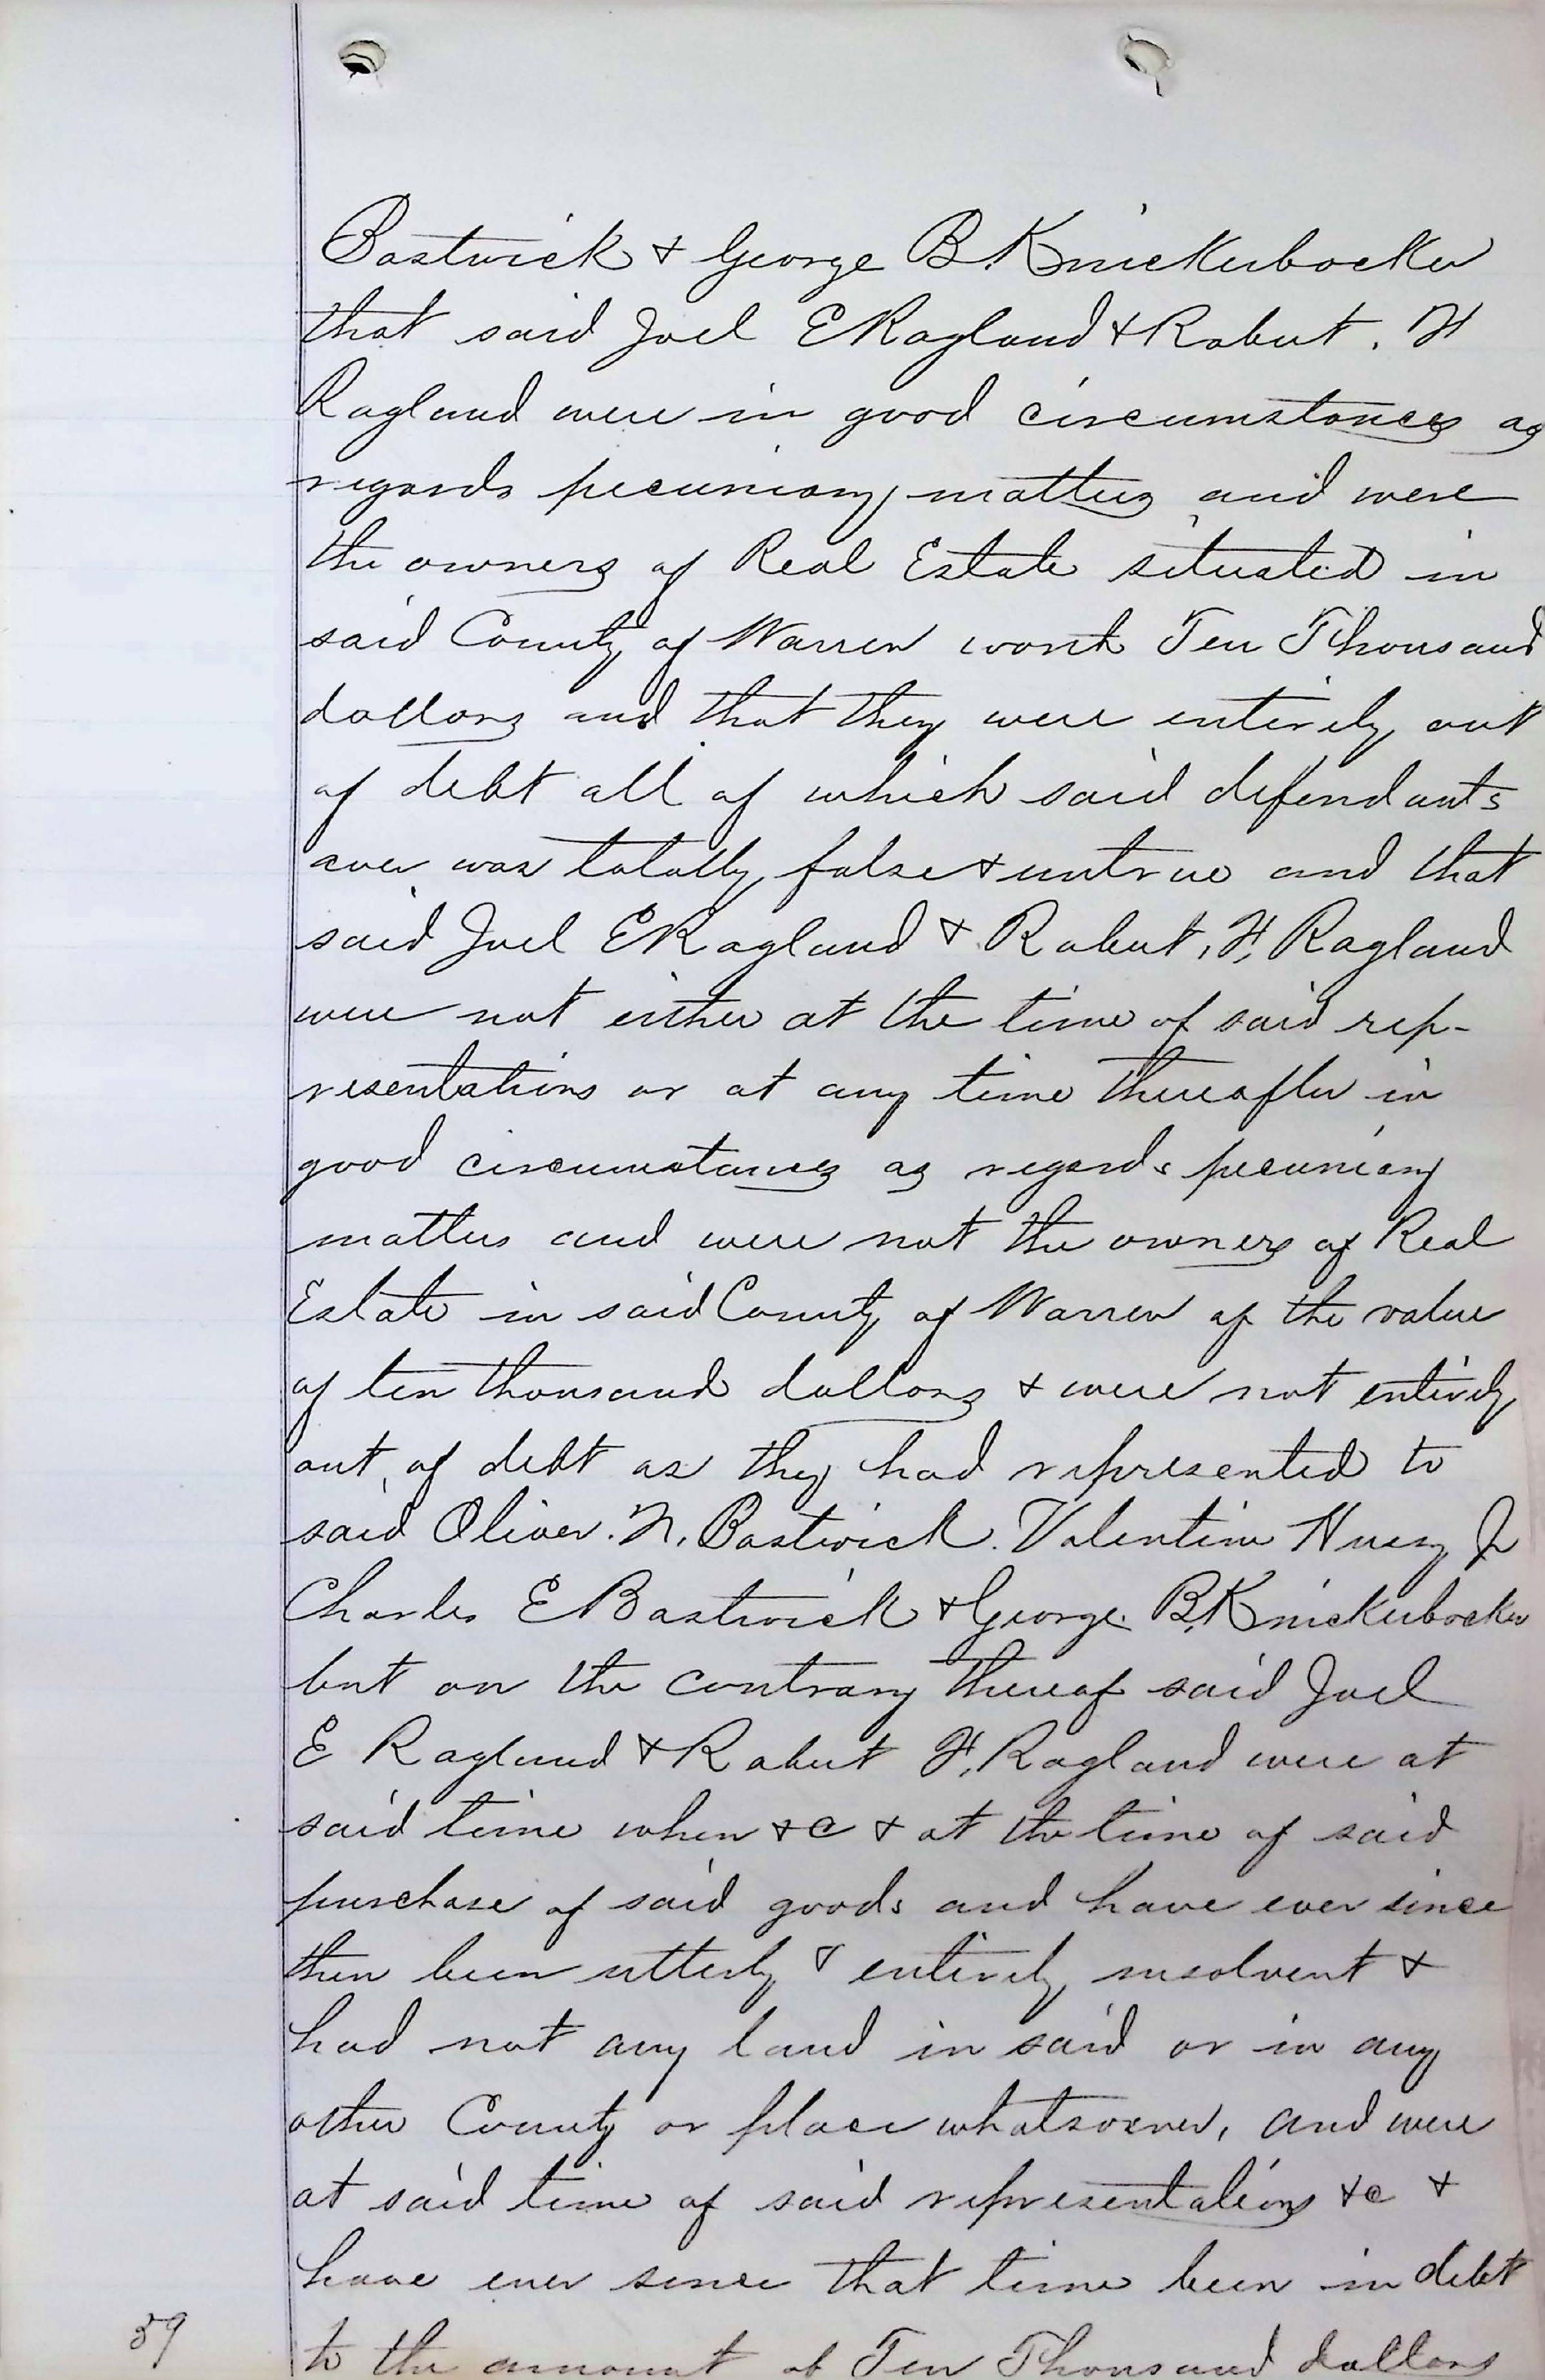 Bostwick & George B. Knickerbocker
that said Joel E Ragland & Robert. H
Ragland were in good circumstances as
regards pecuniary matters and were
the owners of Real Estate situated in
said County of Warren worth Ten Thousand
dollars and that they were entirely out
of debt all of which said defendants
aver was totally false & untrue and that
said Joel E Ragland & Robert, H, Ragland
were not either at the time of said rep-
resentations or at any time thereafter in
good circumstances as regards pecuniary
matters and were not the owners of Real
Estate in said County of Warren of the value
of ten thousand dollars & were not entirely
out, of debt as they had represented to
said Oliver. N, Bostwick. Valentine Jr
Charles E Bostwick & George. B, Knickerbocker
but on the contrary thereof said Joel
E Ragland & Robert H, Ragland were at
said time when &c & at the time of said
purchase of said goods and have ever since
then been utterly & entirely insolvent &
had not any land in said or in any
other County or place whatsoever, and were
at said time of said representations &c &
have ever since that time been in debt
59 to the amount of Ten Thousand dollars